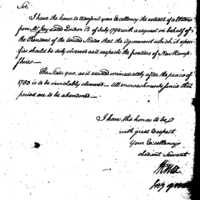 Sir,
I have the honor to transmit your Excellency the extract of a letter
from Mr Jay dated London 12 of July 1794 with a request on behalf of
the President of the United States that the agreement which it speci-
fies should be duly observed as it respects the frontiers of New Hamp-
shire.
The status quo, as it existed immediately after the peace of
1783 is to be inviolably observed — all encroachments from that
period are to be abandoned —
I have the honor to be
with great respect
Your Excellency's
obedient Servant